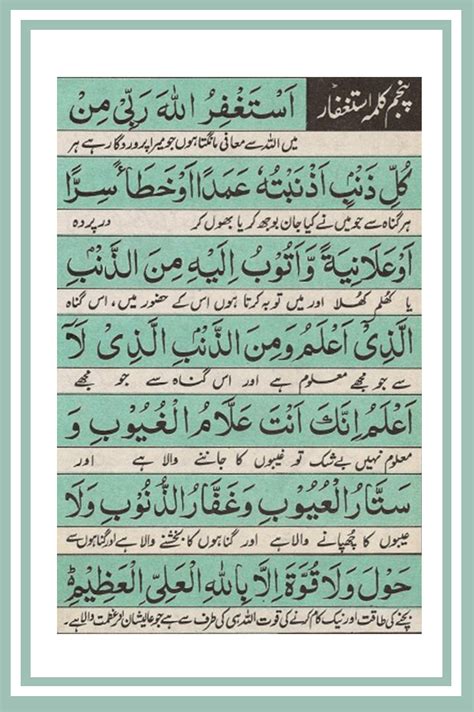 پنجم کلمہ استغفار
اَسْتَغْفِرُ اللهَ رَبِّیْ مِنْ
میں اللہ سے معافی مانگتا ہوں جو میرا پروردگار ہے ہر
کُلِّ ذَنْۢبٍ اَذْنَبْتُهٗ عَمَدًا اَوْ خَطَأً سِرًّا
ہر گناہ سے جو میں نے کیا جان بوجھ کر یا بھول کر در پردہ
اَوْ عَلَانِیَةً وَّاَتُوْبُ اِلَیْهِ مِنَ الذَّنْۢبِ
یا کھلم کھلا اور میں توبہ کرتا ہوں اس کے حضور میں، اس گناہ
الَّذِیْ اَعْلَمُ وَمِنَ الذَّنْۢبِ الَّذِیْ لَآ
سے جو مجھے معلوم ہے اور اس گناہ سے جو مجھے
اَعْلَمُ اِنَّكَ اَنْتَ عَلَّامُ الْغُیُوْبِ وَ
معلوم نہیں بے شک تو غیبوں کا جاننے والا ہے اور
سَتَّارُ الْعُیُوْبِ وَغَفَّارُ الذُّنُوْبِ وَلَا
عیبوں کا چھپانے والا ہے اور گناہوں کا بخشنے والا ہے اور گناہوں سے
حَوْلَ وَلَا قُوَّةَ اِلَّا بِاللهِ الْعَلِیِّ الْعَظِیْمِؕ
بچنے کی طاقت اور نیک کام کرنے کی قوت اللہ ہی کی طرف سے ہے جو عالیشان اور عظمت والا ہے۔